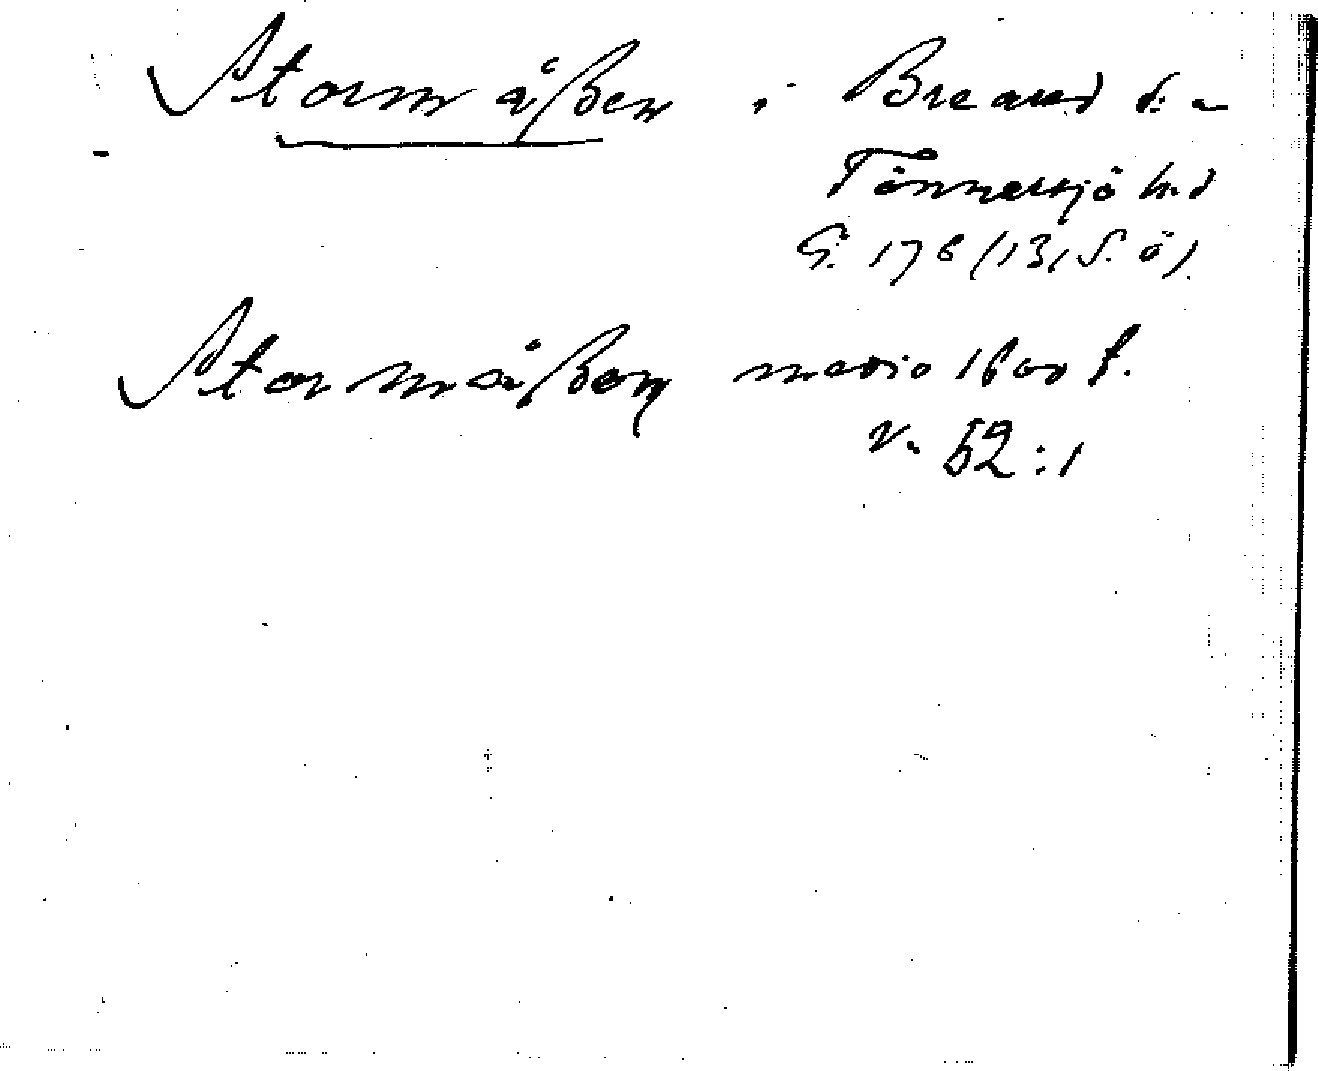 Stormåßen i Breared s:n
Tönnersjö h:d
G. 176 (13, S. ö)
Stormåßen medio 1600 t.
v. 52:1